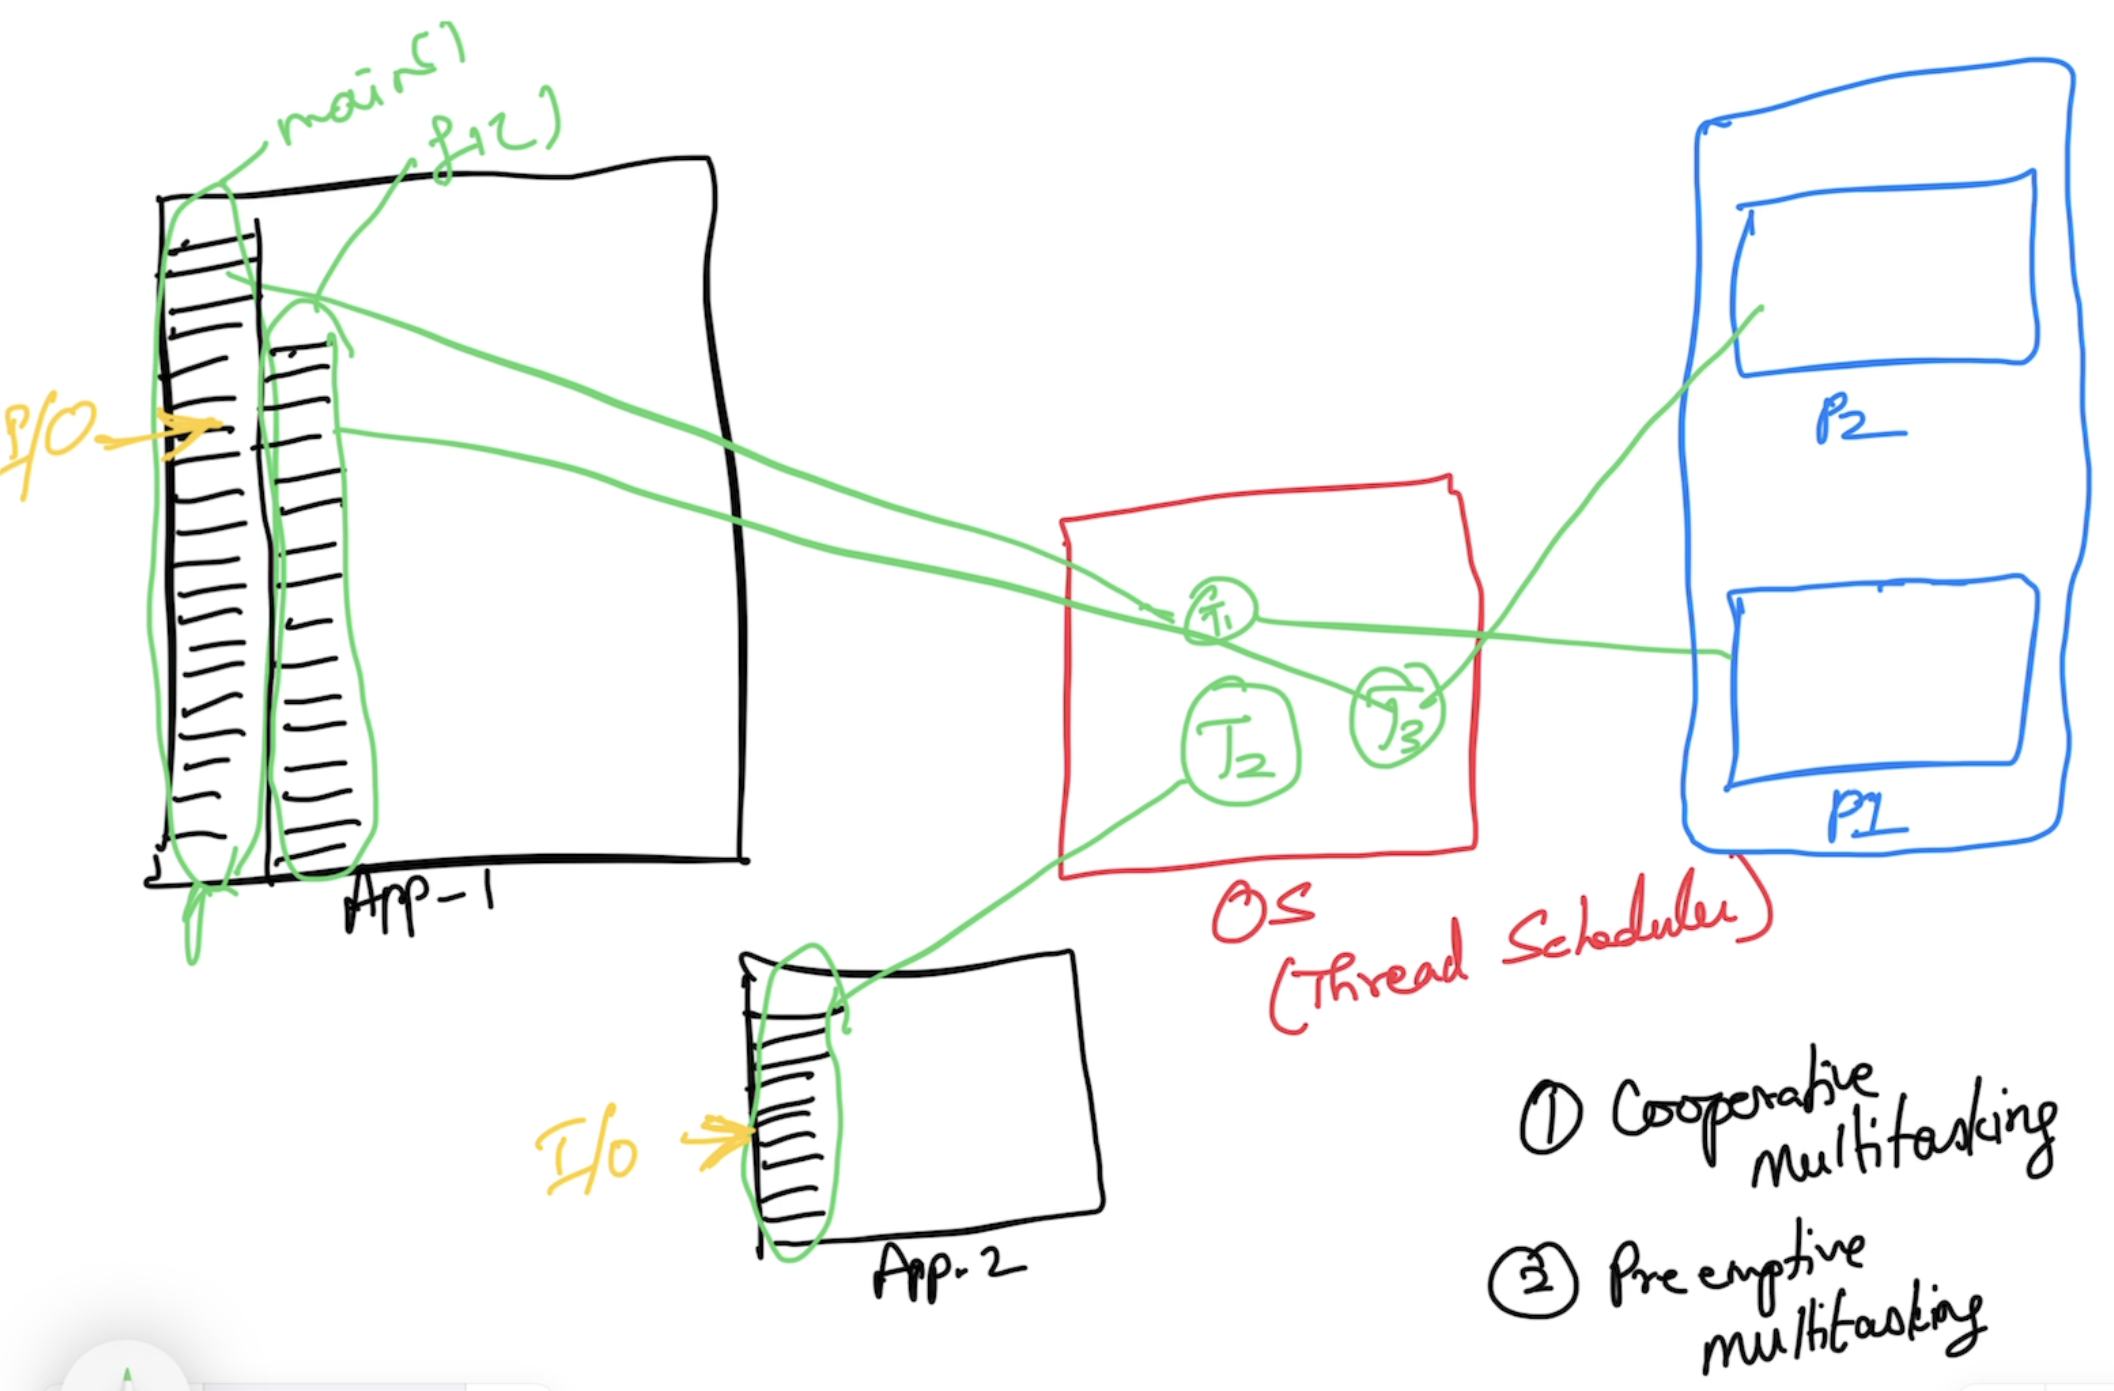 main()
f1()
I/O
App-1
T1
T2
T3
OS
(Thread Scheduler)
P2
P1
I/O
App-2
① Cooperative
multitasking
② Preemptive
multitasking